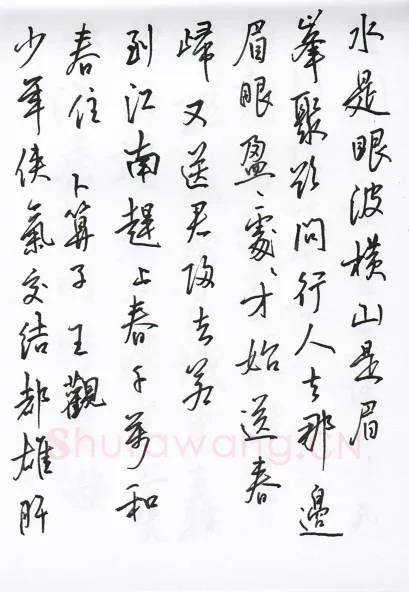 水是眼波橫山是眉
峯聚欲問行人去那邊
眉眼盈〻處〻才始送春
歸又送君歸去若
到江南趕上春千萬和
春住 卜算子 王觀
少年俠氣交結都雄肝
Shufawang.CN